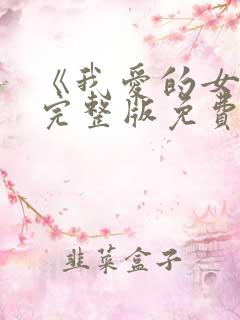 《我爱的女
完整版免费
韭菜盒子